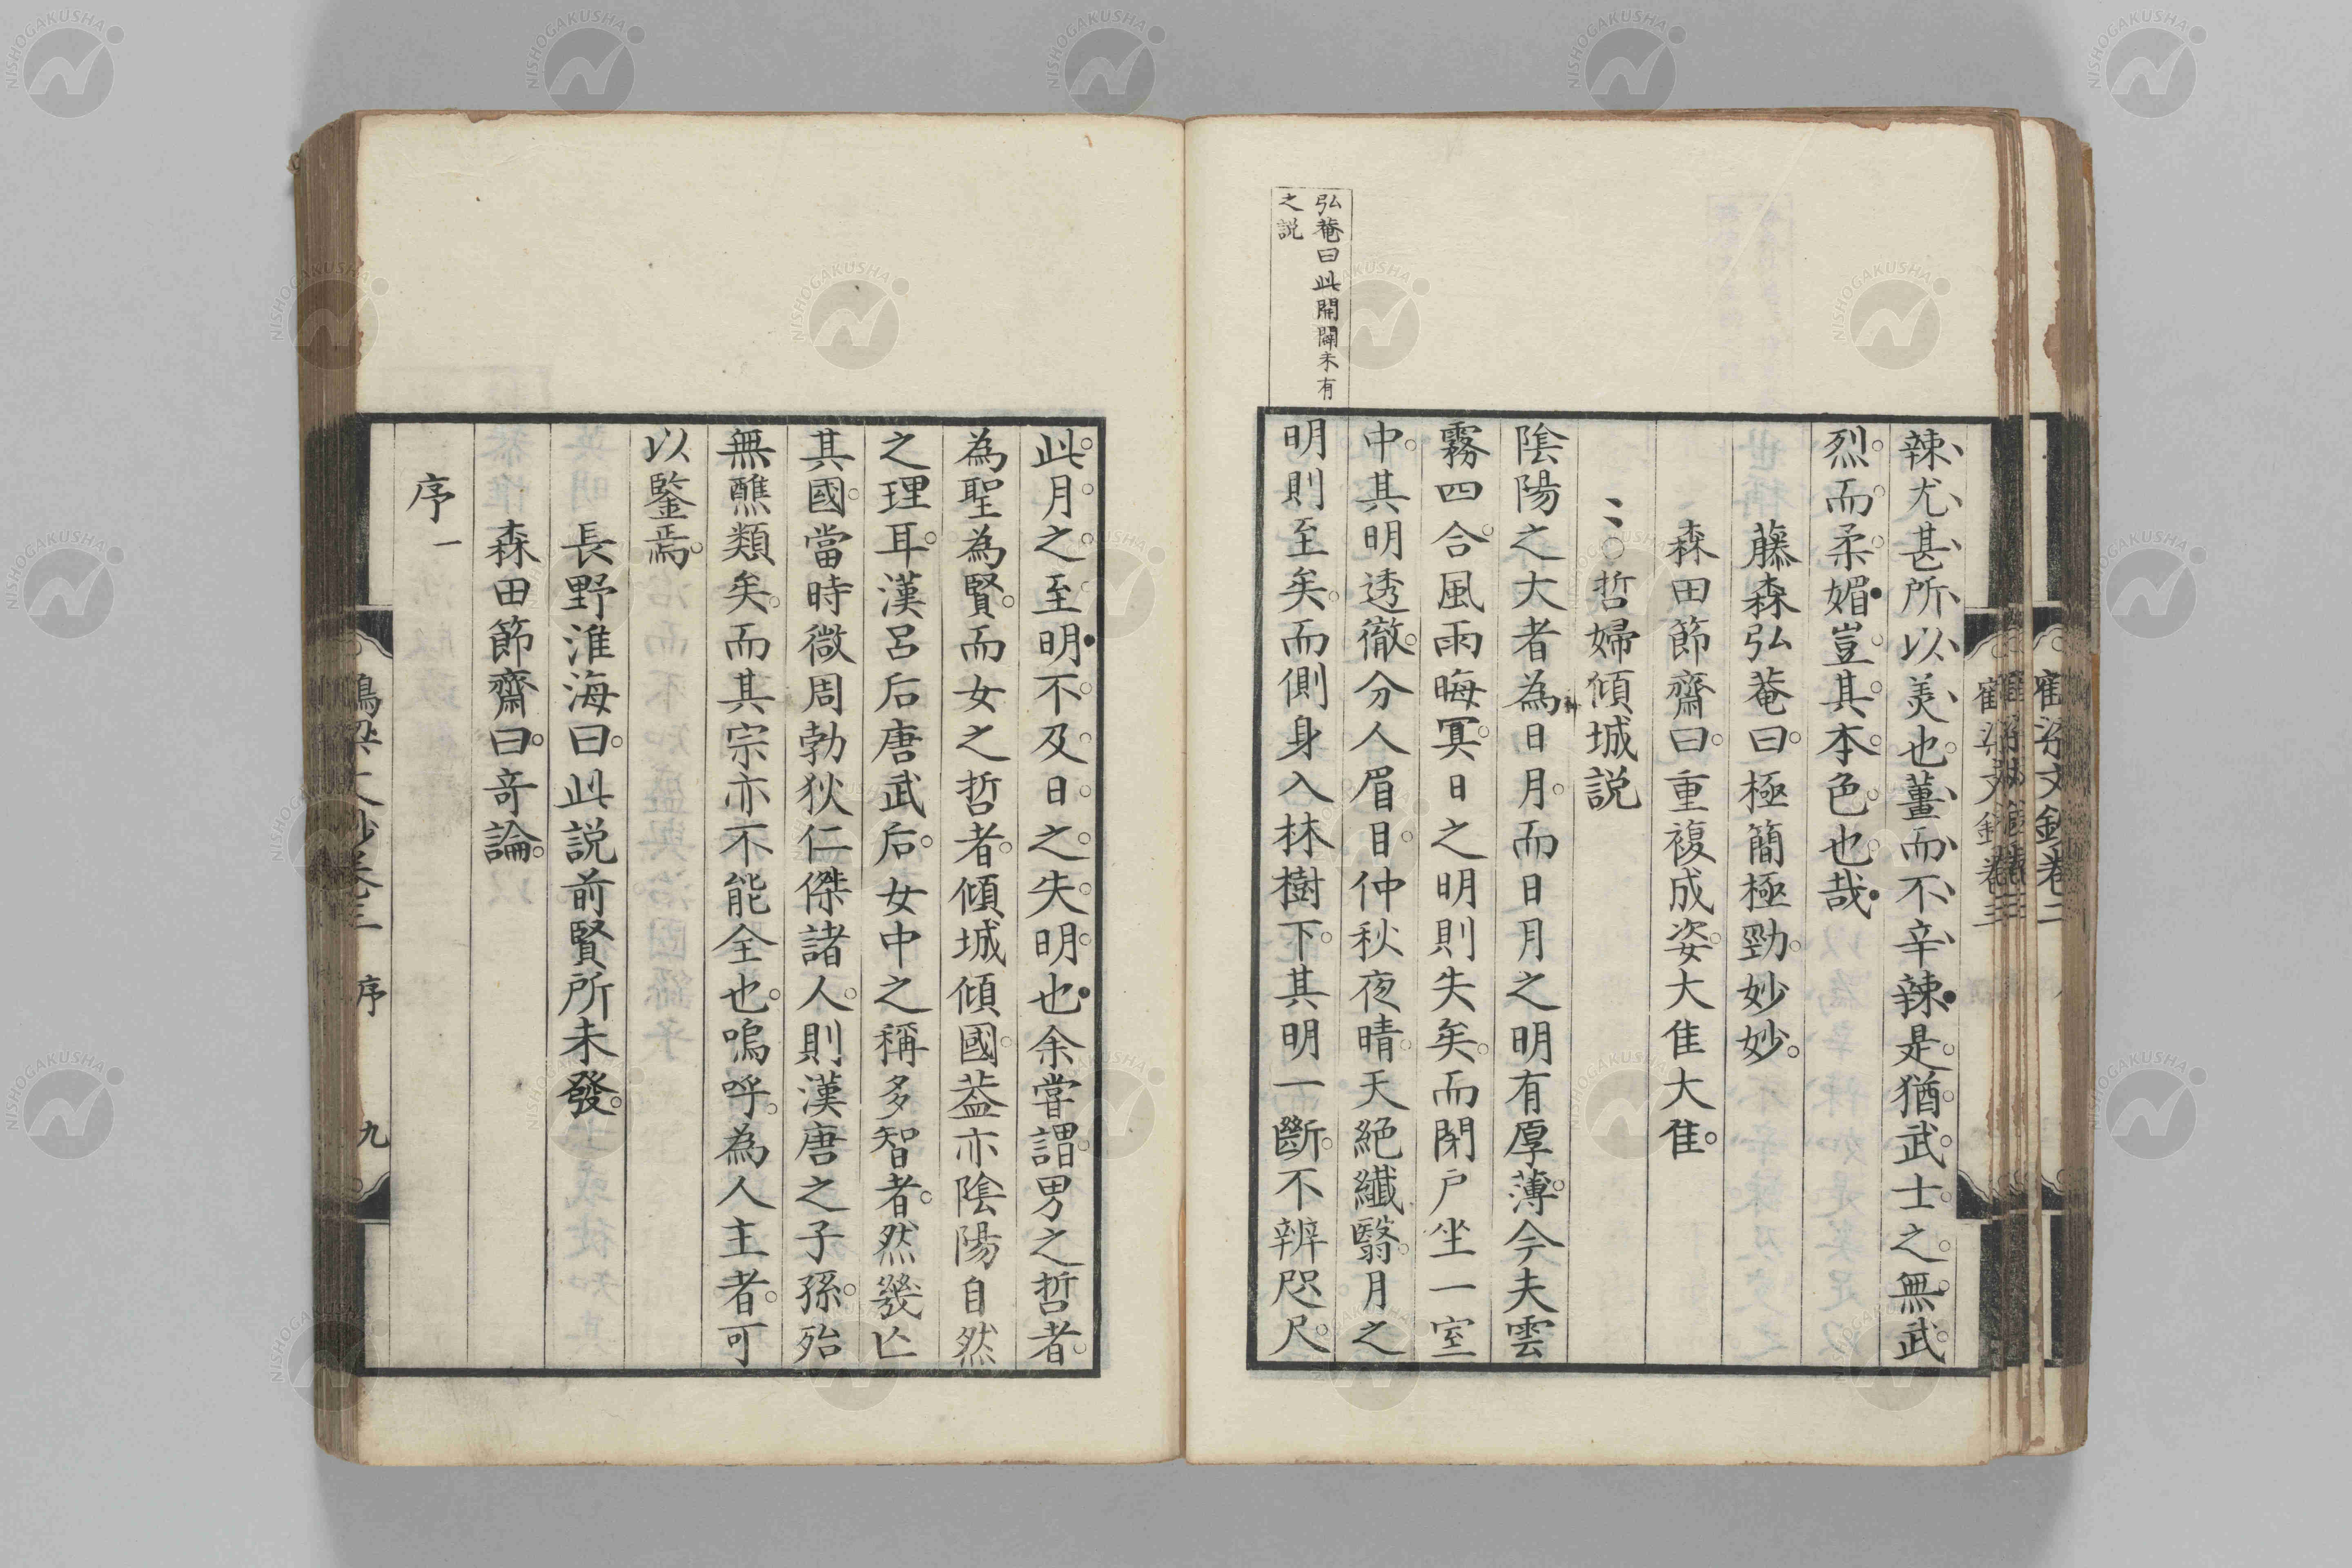 辣尤甚所以美也薑而不辛辣是猶武士之無武
烈而柔媚豈其本色也哉
藤森弘菴曰極簡極勁妙妙
森田節齋曰重複成姿大佳大佳
〻○哲婦傾城説
陰陽之大者為日月而日月之明有厚薄今夫雲
霧四合風雨晦冥日之明則失矣而閉戸坐一室
中其明透徹分人眉目仲秋夜晴天絶纖翳月之
明則至矣而側身入林樹下其明一斷不辨咫尺
弘菴曰此開闢未有
之説
此月之至明不及日之失明也余嘗謂男之哲者
為聖為賢而女之哲者傾城傾國葢亦陰陽自然
之理耳漢呂后唐武后女中之稱多智者然幾亾
其國當時微周勃狄仁傑諸人則漢唐之子孫殆
無醮類矣而其宗亦不能全也嗚呼為人主者可
以鑒焉
長野淮海曰此説前賢所未發
森田節齋曰奇論
序一
鶴梁文鈔卷三 序 九
NISHOGAKUSHA